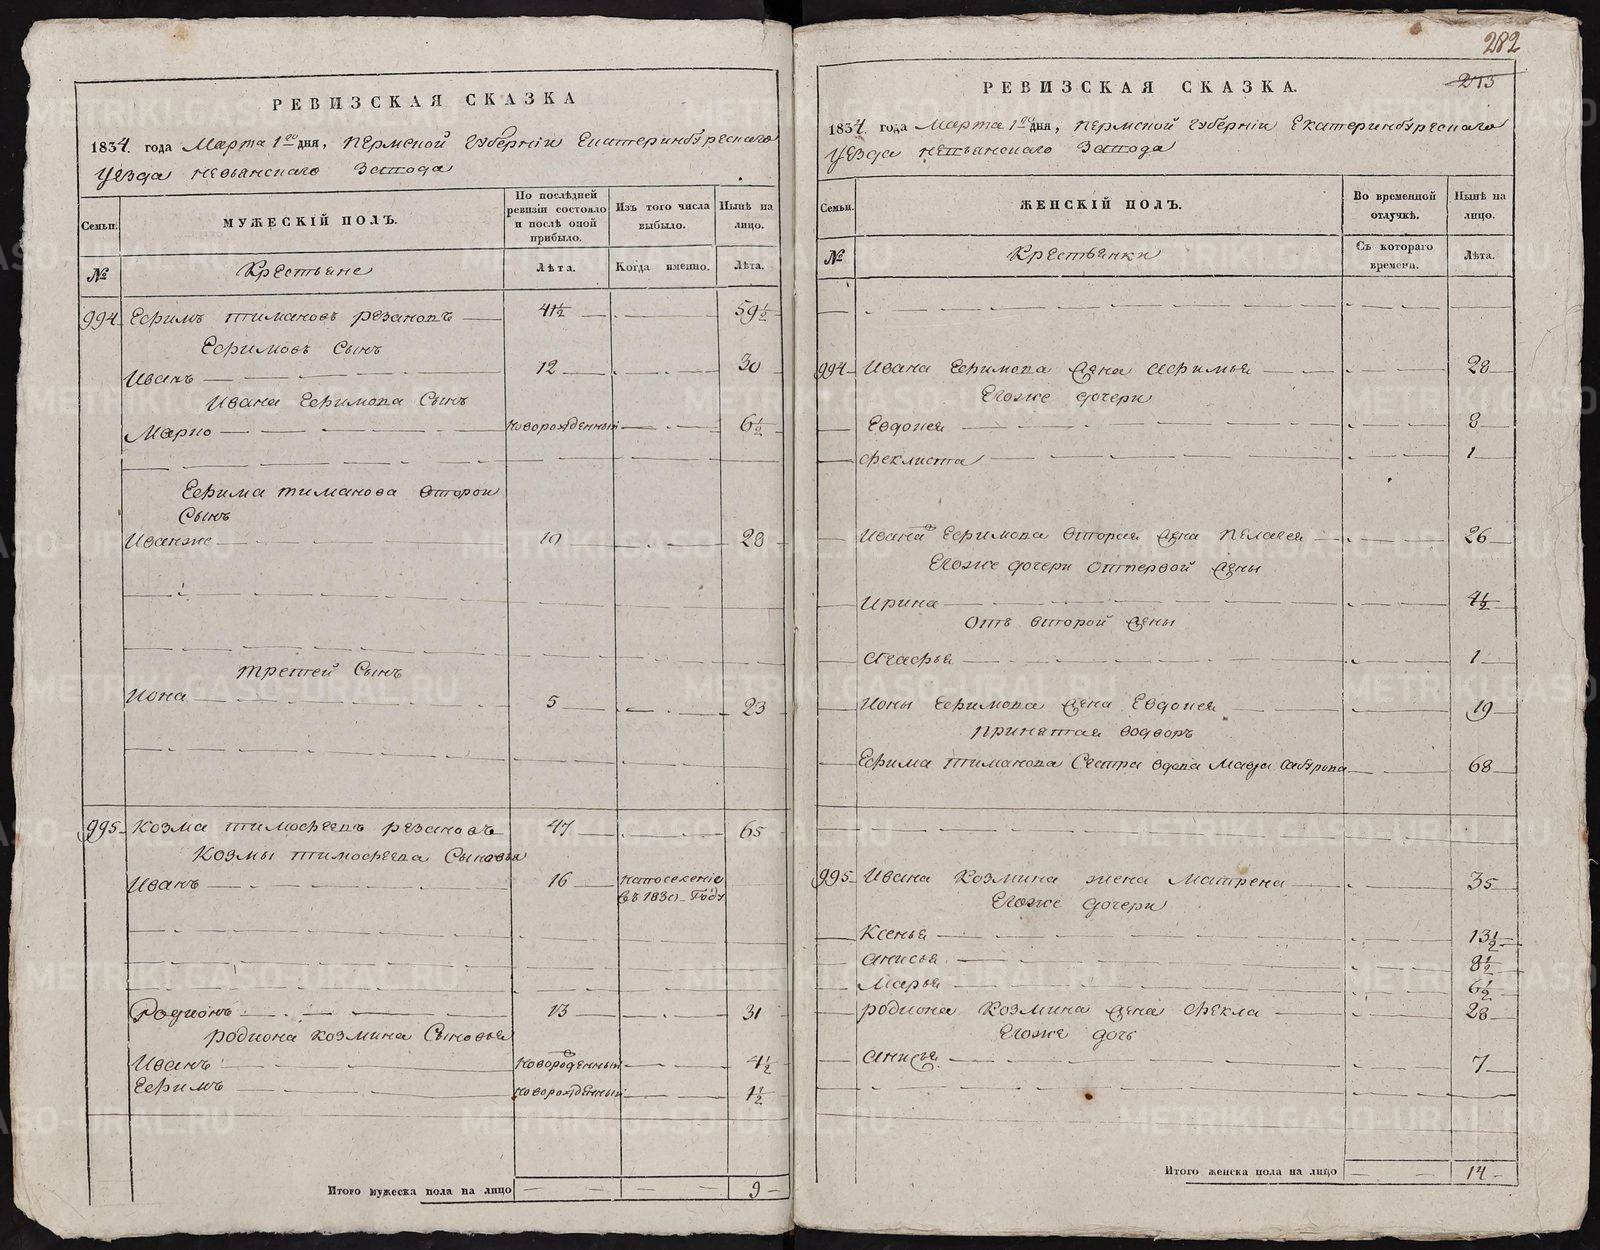 РЕВИЗСКАЯ СКАЗКА
1834. года Марта 1го дня, Пермской губернiи Екатеринбургскаго
уезда Невьянскаго Завода
Семьи.
МУЖЕСКIЙ ПОЛЪ.
По послѣдней ревизiи состояло и послѣ оной прибыло.
Изъ того числа выбыло.
Нынѣ на лицо.
№
Крестьяне
Лѣта.
Когда именно.
Лѣта.
994 Ефимъ Тимановъ Резановъ 41½ 59½
Ефимовъ Сынъ
Иванъ 12 30
Ивана Ефимова Сынъ
Марко новорожденный 6½
Ефима Тиманова второй
Сынъ
Иванже 10 28
третей Сынъ
Иона 5 23
995 Козма Тимофеевъ Резановъ 47 65
Козмы Тимофеева Сыновья
Иванъ 16 напоселенiе
въ 1830 Году
Родионъ 13 31
Родиона Козмина Сыновья
Иванъ новорожденный 4½
Ефимъ новорожденный 1½
Итого мужеска пола на лицо 9
282
273
РЕВИЗСКАЯ СКАЗКА.
1834. года Марта 1го дня, Пермской губернiи Екатеринбургскаго
уезда Невьянскаго Завода
Семьи.
ЖЕНСКIЙ ПОЛЪ.
Во временной отлучкѣ.
Нынѣ на лицо.
№
Крестьянки
Съ котораго времени.
Лѣта.
994 Ивана Ефимова жена Афимья 28
Егоже дочери
Евдокея 8
Феклиста 1
Ивана Ефимова вторая жена Пелагея 26
Егоже дочери отпервой жены
Ирина 4½
Отъ второй жены
Агафья 1
Ионы Ефимова жена Евдокея 19
Принятая водворъ
Ефима Тиманова Сестра вдова Мавра 68
995 Ивана Козмина жена Матрена 35
Егоже дочери
Ксенья 13½
Анисья 8½
Марья 6½
Родиона Козмина жена Фекла 28
Егоже дочь
Анисья 7
Итого женска пола на лицо 14
METRIKI.GASO-URAL.RU